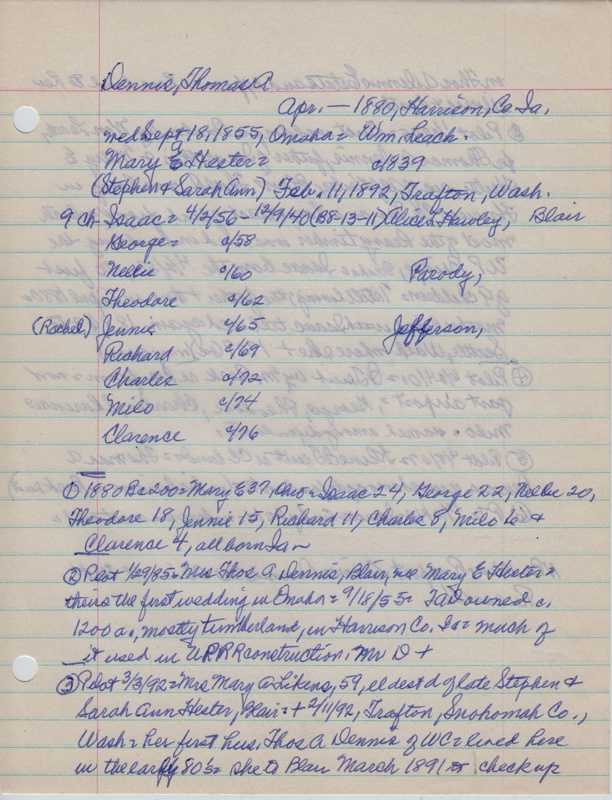 Dennis, Thomas A
Apr. — 1880, Harrison, Co Ia,
wed Sept 18, 1855, Omaha = Wm. Leach.
Mary E Hester = c/1839
(Stephen & Sarah Ann) Feb. 11, 1892, Trafton, Wash.
9 ch - Isaac = 4/2/56 - 12/9/40 (B8-13-11) Alice F Hawley, Blair
George = c/58
Nellie c/60 Parody,
Theodore c/62
(Rachel) Jennie c/65 Jefferson,
Richard c/69
Charles c/72
Milo c/74
Clarence c/76
① 1880 Bz 200 = Mary E 37, Ohio = Isaac 24, George 22, Nellie 20,
Theodore 18, Jennie 15, Richard 11, Charles 8, Milo 6 &
Clarence 4, all born Ia ~
② Pilot 1/29/85 = Mrs Thos A Dennis, Blair, nee Mary E Hester =
theirs the first wedding in Omaha = 9/18/55 = TaD owned c.
1200 a., mostly timberland, in Harrison Co. Ia = much of
it used in UPRR construction. Mr D +
③ Pilot 3/3/92 = Mrs Mary A Likens, 59, eldest d of late Stephen &
Sarah Ann Hester, Blair = + 2/11/92, Trafton, Snohomah Co.,
Wash = her first hus. Thos A Dennis of WC = lived here
in the early 80's = she to Blair March 1891 check up